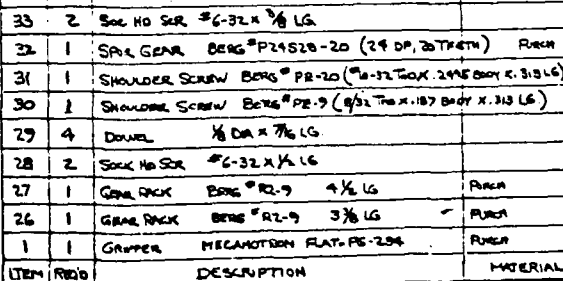 33 2 SOC HD SCR #6-32 x 3/8 LG
32 1 SPUR GEAR BERG #P24S28-20 (24 DP, 20 TEETH) PURCH
31 1 SHOULDER SCREW BERG #PR-20 ( -32 THD X .2495 BODY X .313 LG)
30 1 SHOULDER SCREW BERG # -9 (8/32 THD X .187 BODY X .313 LG)
29 4 DOWEL 1/8 DIA x 7/16 LG
28 2 SOCK HD SCR #6-32 x 1/2 LG
27 1 GEAR RACK BERG #R2-9 4 1/2 LG PURCH
26 1 GEAR RACK BERG #R2-9 3 3/8 LG PURCH
1 1 GRIPPER MECANOTRON FLAT-PG-294 PURCH
ITEM REQ'D DESCRIPTION MATERIAL